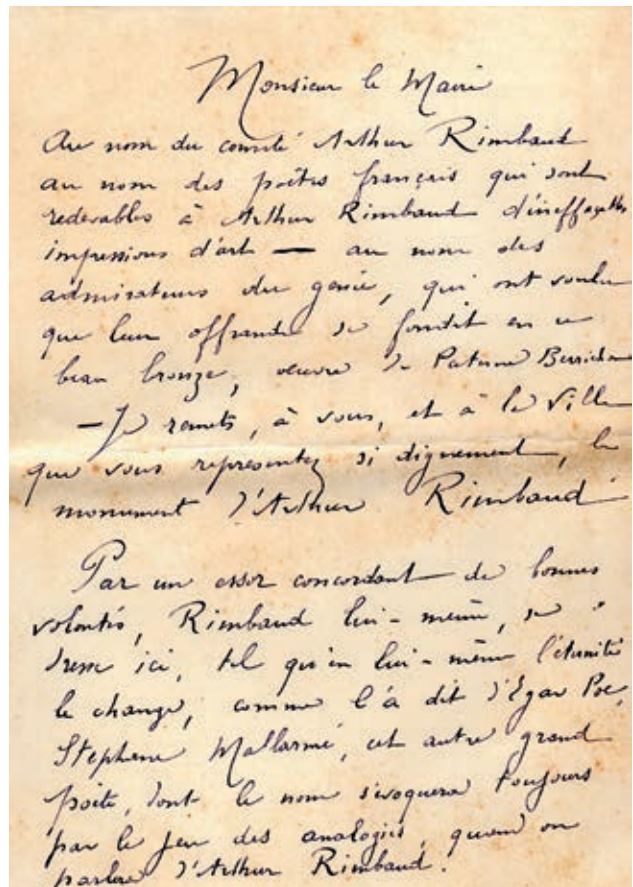 Monsieur le Maire
Au nom du comité Arthur Rimbaud
au nom des poëtes français qui sont
redevables à Arthur Rimbaud d'ineffaçables
impressions d'art — au nom des
admirateurs du génie, qui ont voulu
que leur offrande se fondit en ce
beau bronze, œuvre de Paterne Berrichon
— Je remets, à vous, et à la Ville
que vous représentez si dignement, le
monument d'Arthur Rimbaud
Par un essor concordant de bonnes
volontés, Rimbaud lui-même, se
dresse ici, tel qu'en lui-même l'éternité
le change, comme l'a dit d'Egar Poe,
Stephane Mallarmé, cet autre grand
poëte, dont le nom s'évoquera toujours
par le jeu des analogies, quand on
parlera d'Arthur Rimbaud.